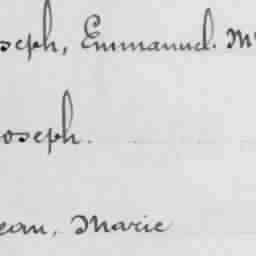 seph, Emmanuel. M
oseph.
ean, Marie